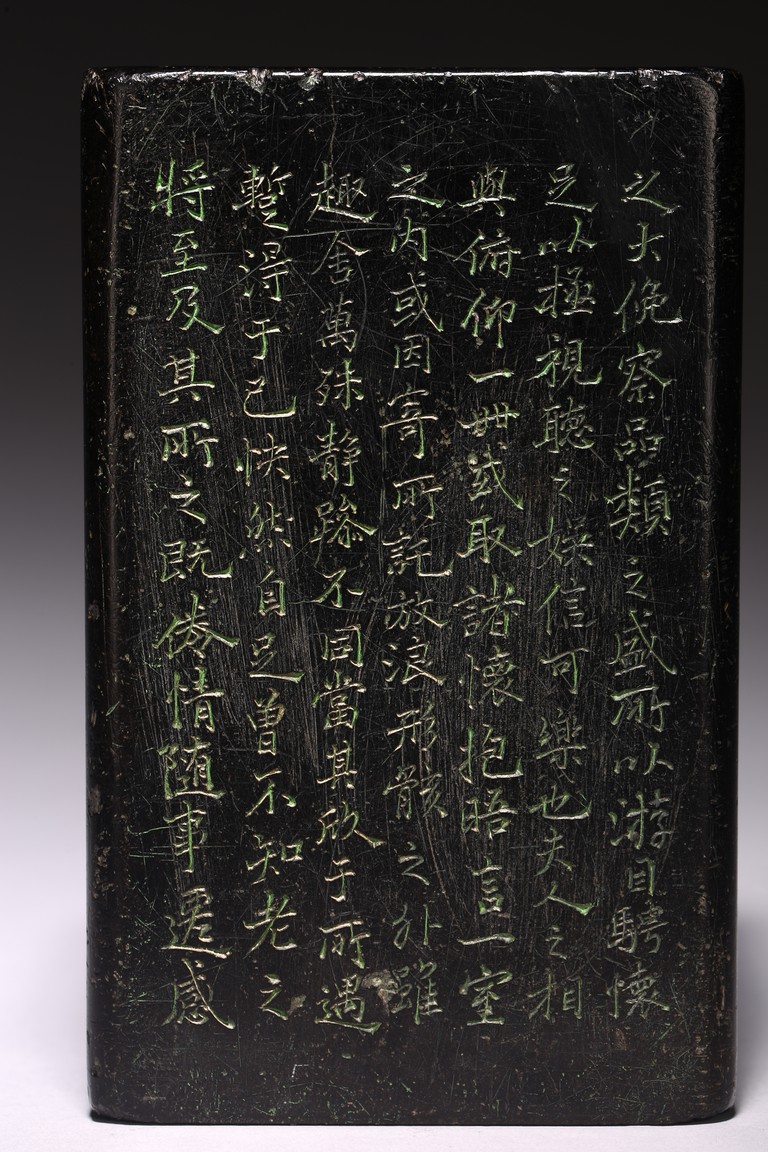 之大俛察品類之盛所以游目騁懷
足以極視聽之娛信可樂也夫人之相
與俯仰一世或取諸懷抱晤言一室
之內或因寄所託放浪形骸之外雖
趣舍萬殊静躁不同當其欣于所遇
蹔得于己快然自足曾不知老之
將至及其所之既倦情隨事遷感